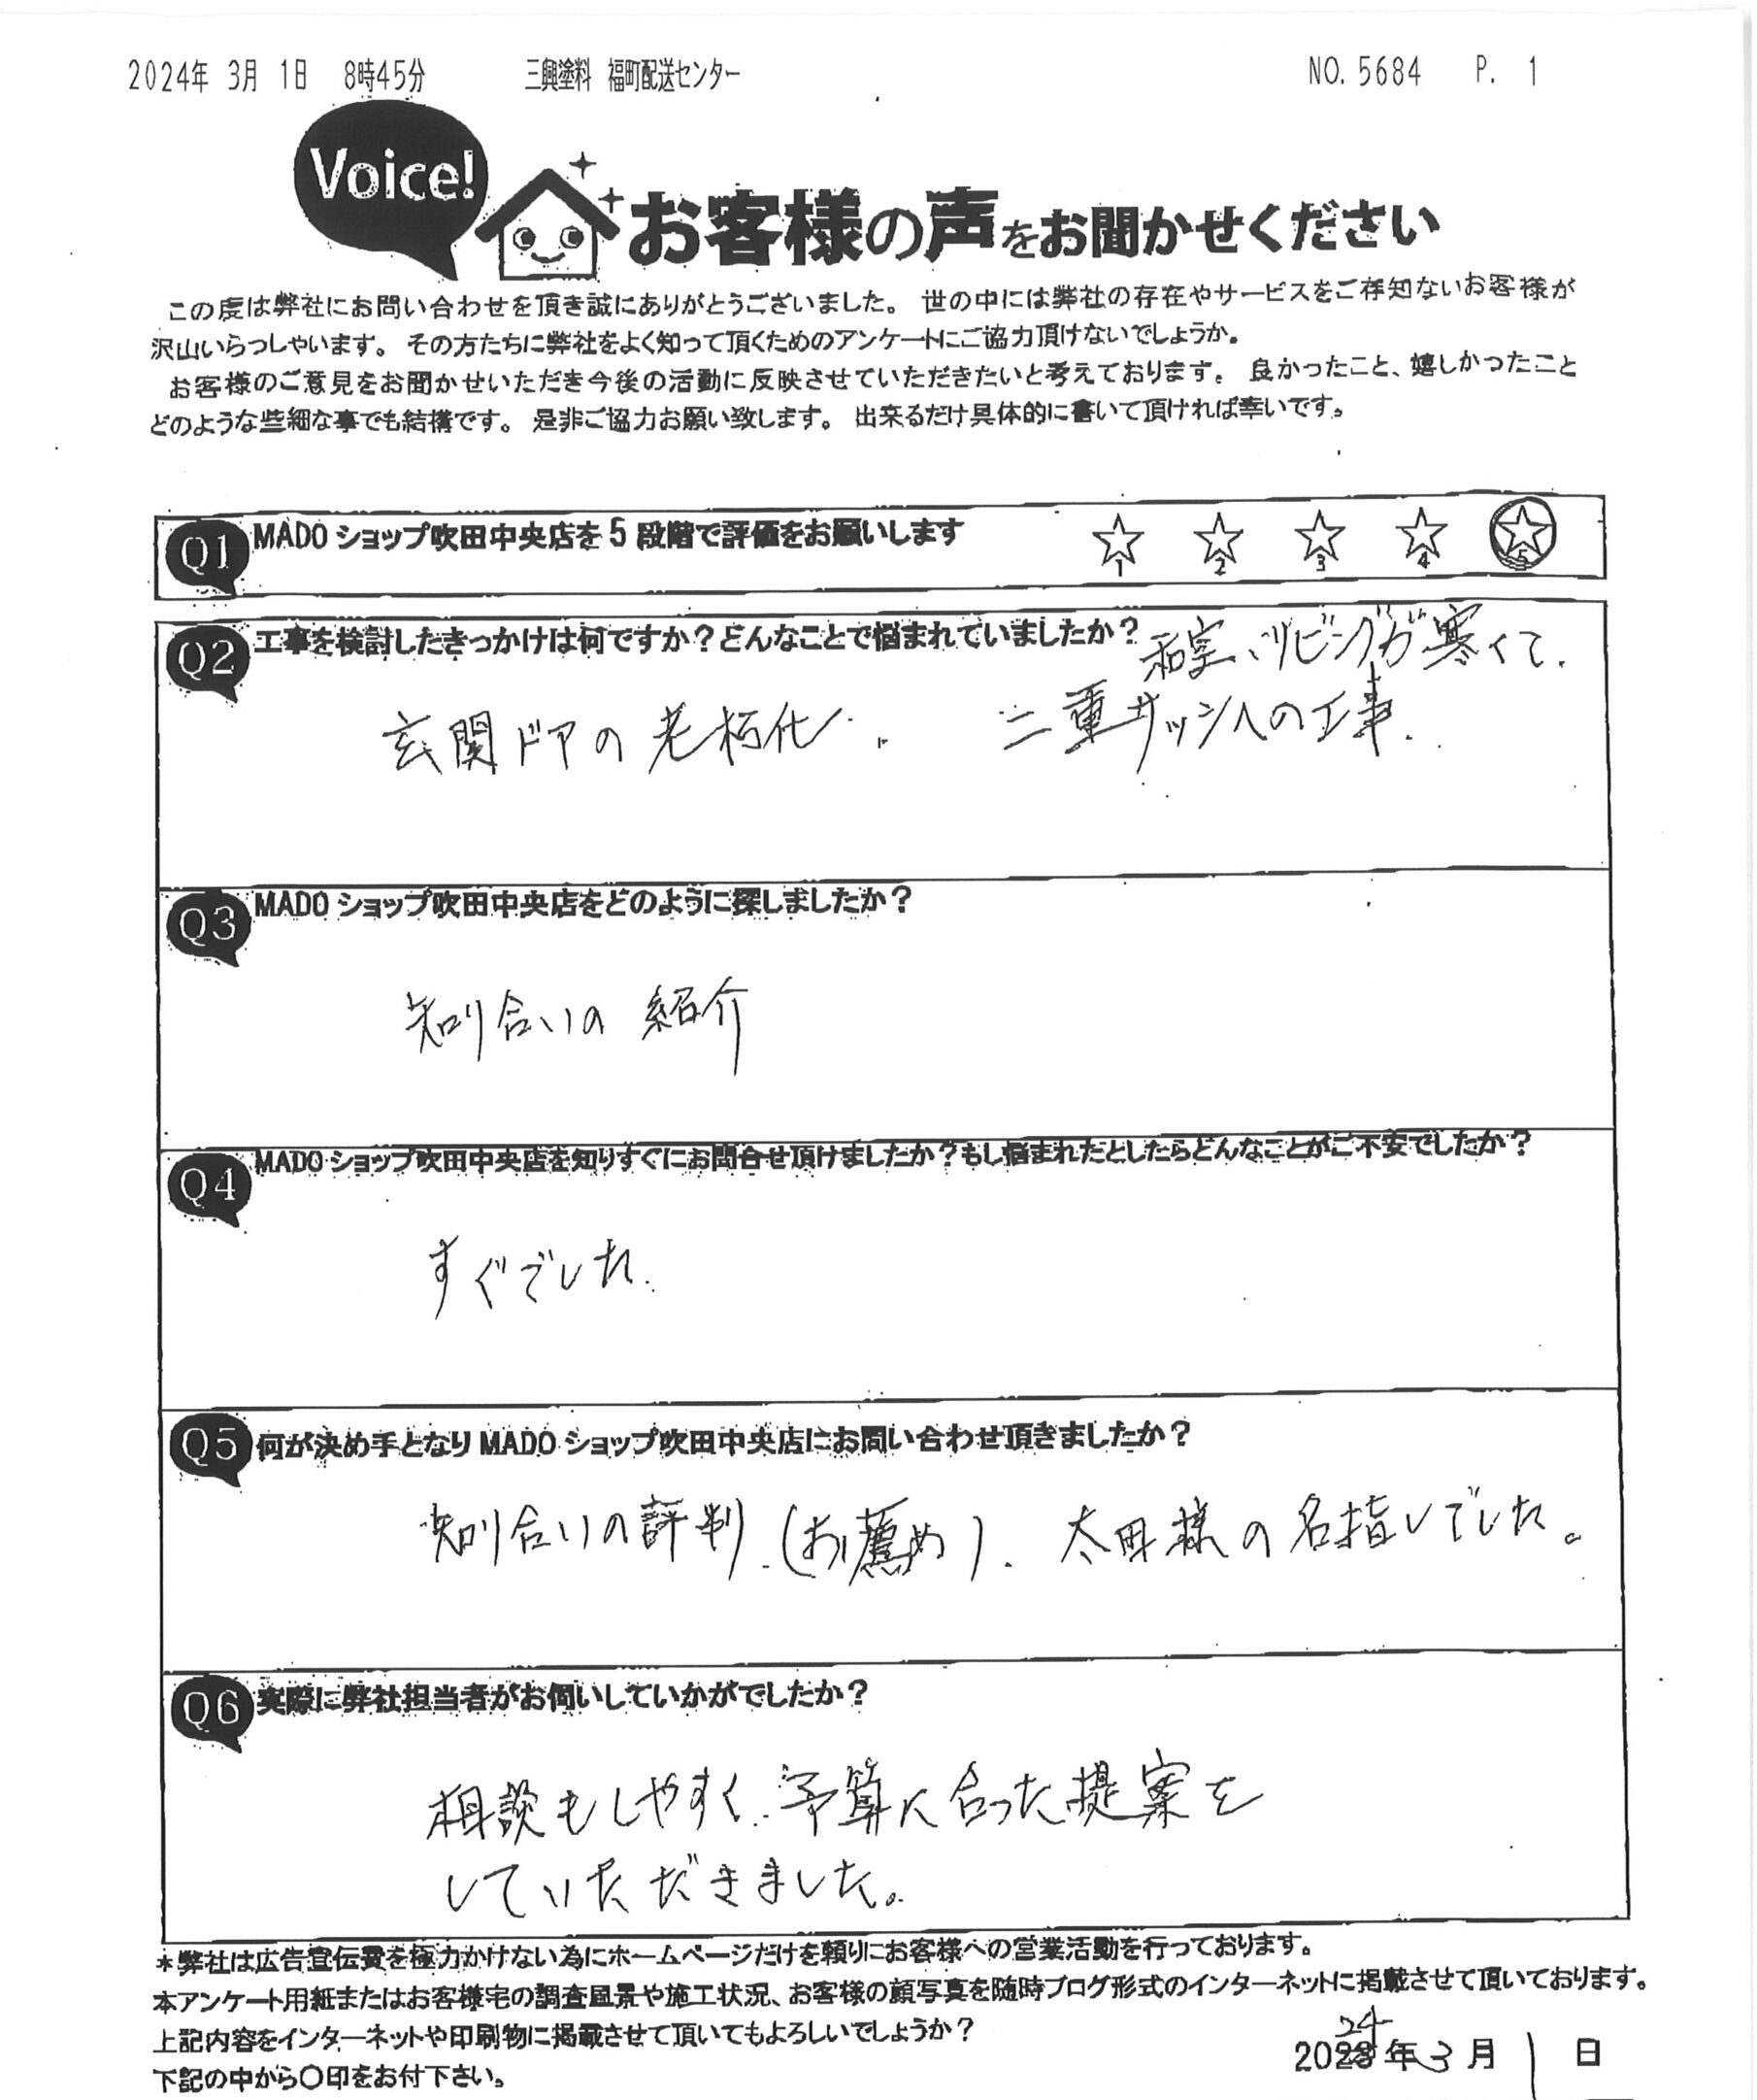 2024年 3月 1日 8時45分 三興塗料 福町配送センター NO. 5684 P. 1
Voice!
お客様の声をお聞かせください
この度は弊社にお問い合わせを頂き誠にありがとうございました。 世の中には弊社の存在やサービスをご存知ないお客様が
沢山いらっしゃいます。 その方たちに弊社をよく知って頂くためのアンケートにご協力頂けないでしょうか。
お客様のご意見をお聞かせいただき今後の活動に反映させていただきたいと考えております。 良かったこと、嬉しかったこと
どのような些細な事でも結構です。 是非ご協力お願い致します。 出来るだけ具体的に書いて頂ければ幸いです。
Q1 MADOショップ吹田中央店を5段階で評価をお願いします ☆1 ☆2 ☆3 ☆4 ☆5
Q2 工事を検討したきっかけは何ですか？どんなことで悩まれていましたか？
和室、リビングが寒くて、
玄関ドアの老朽化、 二重サッシへの工事。
Q3 MADOショップ吹田中央店をどのように探しましたか？
知り合いの紹介
Q4 MADOショップ吹田中央店を知りすぐにお問合せ頂けましたか？もし悩まれたとしたらどんなことがご不安でしたか？
すぐでした。
Q5 何が決め手となりMADOショップ吹田中央店にお問い合わせ頂きましたか？
知り合いの評判、(お薦め)、太田様の名指しでした。
Q6 実際に弊社担当者がお伺いしていかがでしたか？
相談もしやすく、予算に合った提案を
していただきました。
＊弊社は広告宣伝費を極力かけない為にホームページだけを頼りにお客様への営業活動を行っております。
本アンケート用紙またはお客様宅の調査風景や施工状況、お客様の顔写真を随時ブログ形式のインターネットに掲載させて頂いております。
上記内容をインターネットや印刷物に掲載させて頂いてもよろしいでしょうか？
24
2023年3月1日
下記の中から〇印をお付下さい。